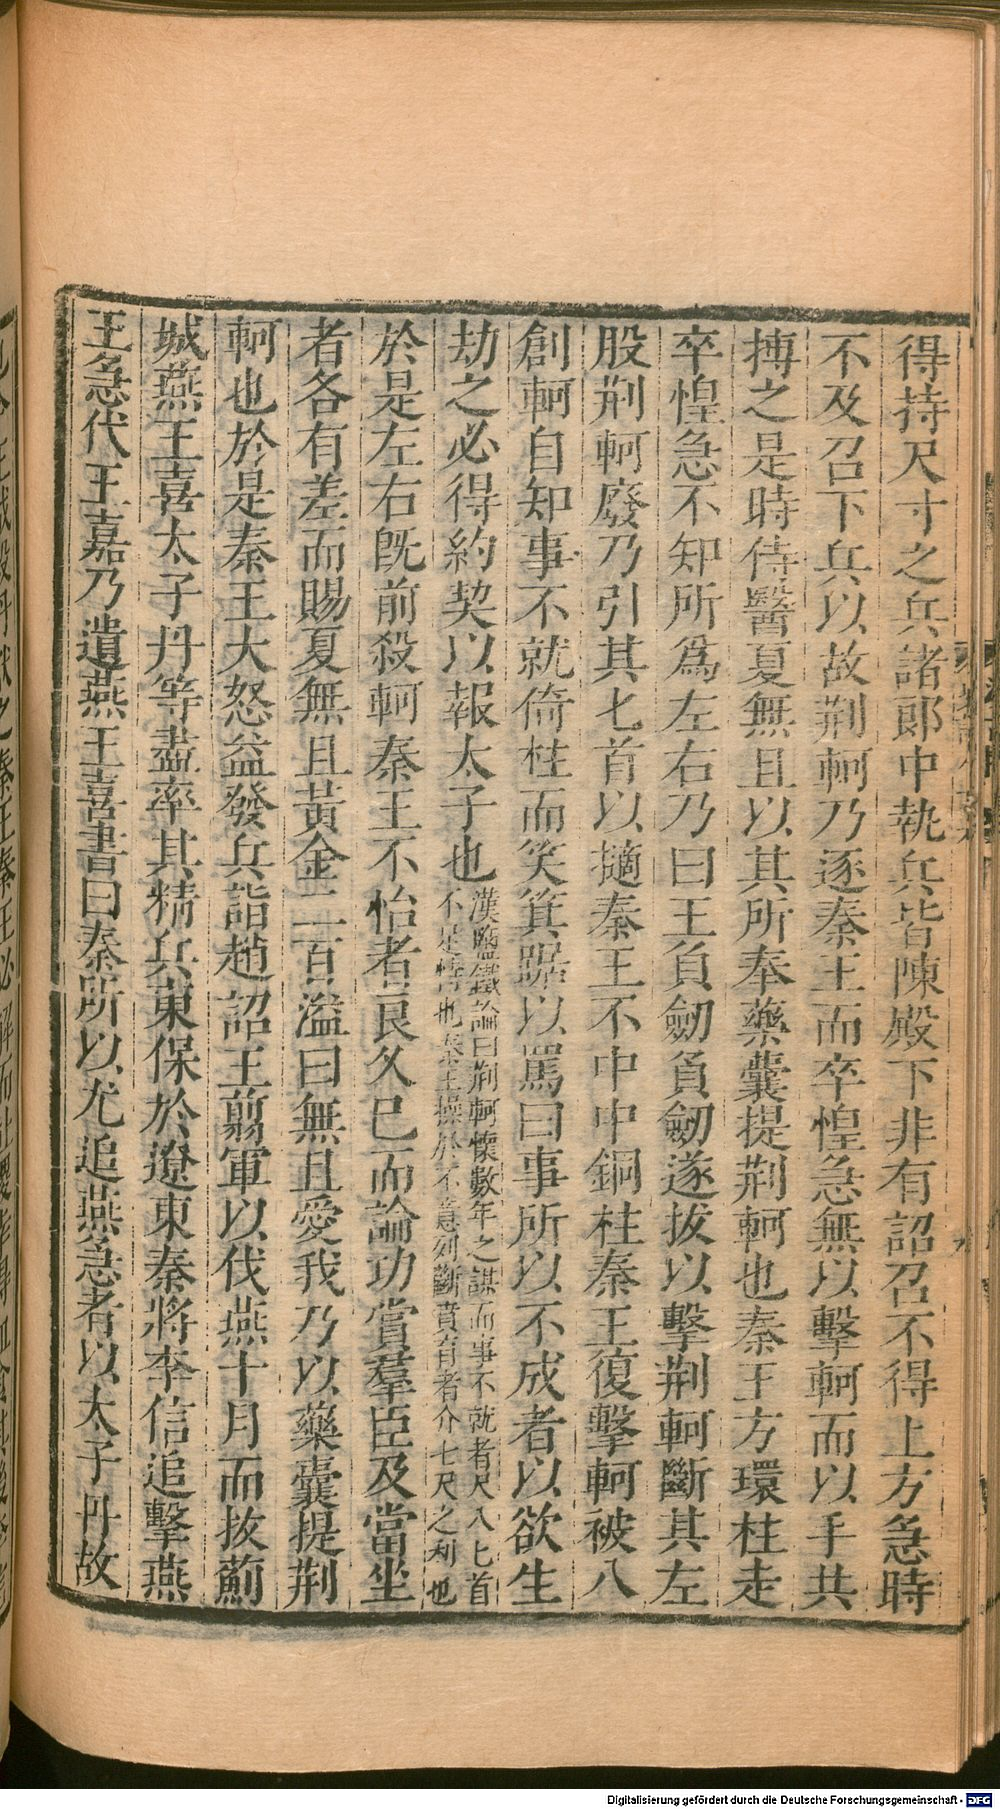 得持尺寸之兵諸郎中執兵皆陳殿下非有詔召不得上方急時
不及召下兵以故荆軻乃逐秦王而卒惶急無以擊軻而以手共
搏之是時侍醫夏無且以其所奉藥囊提荆軻也秦王方環柱走
卒惶急不知所爲左右乃曰王負劒負劒遂拔以擊荆軻斷其左
股荆軻廢乃引其匕首以擿秦王不中中銅柱秦王復擊軻被八
創軻自知事不就倚柱而笑箕踞以罵曰事所以不成者以欲生
劫之必得約契以報太子也
漢鹽鐵論曰荆軻懷數年之謀而事不就者尺八匕首
不足恃也秦王操於不意列斷賁育者介七尺之利也
於是左右旣前殺軻秦王不怡者良久已而論功賞羣臣及當坐
者各有差而賜夏無且黃金二百溢曰無且愛我乃以藥囊提荆
軻也於是秦王大怒益發兵詣趙詔王翦軍以伐燕十月而拔薊
城燕王喜太子丹等盡率其精兵東保於遼東秦將李信追擊燕
王急代王嘉乃遺燕王喜書曰秦所以尤追燕急者以太子丹故
Digitalisierung gefördert durch die Deutsche Forschungsgemeinschaft - DFG